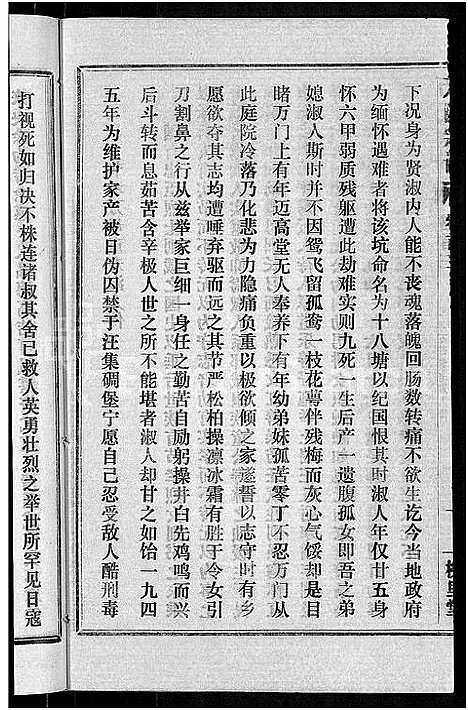 下况身为贤淑内人能不丧魂落魄回肠数转痛不欲生讫今当地政府
为缅怀遇难者将该坑命名为十八塘以纪国恨其时淑人年仅廿五身
怀六甲弱质残躯遭此劫难实则九死一生后产一遗腹孤女即吾之弟
媳淑人斯时并不因鸳飞留孤鸯一枝花萼伴残梅而灰心气馁却是目
睹万门上有年迈高堂无人奉养下有年幼弟妹孤苦零丁不忍万门从
此庭院冷落乃化悲为力隐痛负重以极欲倾之家遂誓以志守时有乡
愿欲夺其志均遭唾弃驱而远之其节严松柏操凛冰霜有胜于令女引
刀割鼻之行从兹举家巨细一身任之勤苦自励躬操井臼先鸡鸣而兴
后斗转而息茹苦含辛极人世之所不能堪者淑人却甘之如饴一九四
五年为维护家产被日伪囚禁于汪集碉堡宁愿自己忍受敌人酷刑毒
打视死如归决不株连诸叔其舍己救人英勇壮烈之举世所罕见日寇